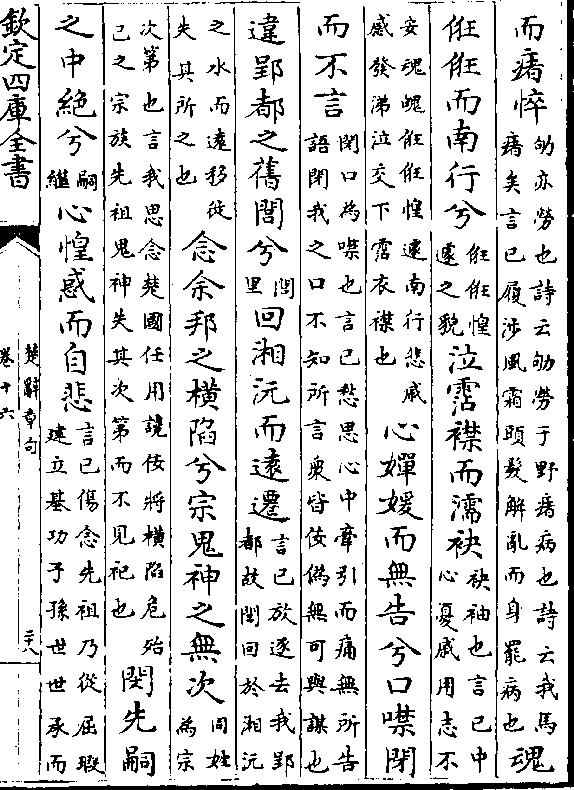 而瘏悴劬亦勞也詩云劬勞于野瘏病也詩云我馬瘏矣言已履涉風霜頭髮解亂而身罷病也魂
俇俇而南行兮俇俇惶遽之貌泣霑襟而濡袂袂袖也言已中心憂慼用志不
安魂魄俇俇惶遽南行悲慼感發涕泣交下霑衣襟也心嬋媛而無告兮口噤閉
而不言閉口為噤也言已愁思心中牽引而痛無所告語閉我之口不知所言衆皆佞偽無可與謀也
違郢都之舊閭兮閭里回湘沅而遠遷言已放逐去我郢都故閭回於湘沅
之水而遠移徙失其所之也念余邦之横陷兮宗鬼神之無次同姓為宗
次第也言我思念楚國任用讒佞將横陷危殆已之宗族先祖鬼神失其次第而不見祀也閔先嗣
之中絶兮嗣繼心惶惑而自悲言已傷念先祖乃從屈瑕建立基功子孫世世承而
欽定四庫全書
楚辭章句
卷十六
二十八